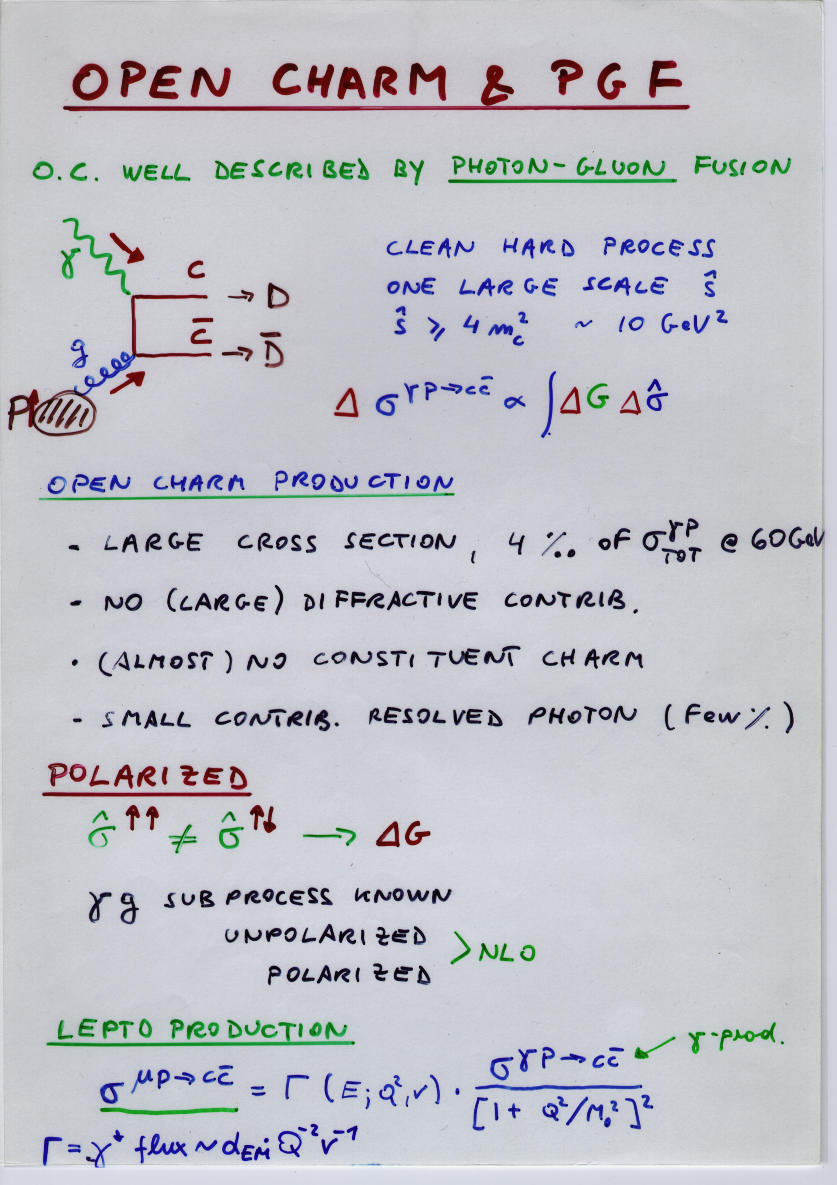 OPEN CHARM & PGF
O.C. WELL DESCRIBED BY PHOTON-GLUON FUSION
γ
C → D
C̄ → D̄
g
P
CLEAN HARD PROCESS
ONE LARGE SCALE ŝ
ŝ ⩾ 4 m_c² ~ 10 GeV²
Δ σ^{γP→cc̄} ∝ ∫ ΔG Δσ̂
OPEN CHARM PRODUCTION
- LARGE CROSS SECTION, 4 ‰ OF σ^{γP}_{TOT} @ 60 GeV
- NO (LARGE) DIFFRACTIVE CONTRIB.
· (ALMOST) NO CONSTITUENT CHARM
- SMALL CONTRIB. RESOLVED PHOTON (Few %)
POLARIZED
σ̂^{↑↑} ≠ σ̂^{↑↓} → ΔG
γg SUBPROCESS KNOWN
UNPOLARIZED
POLARIZED > NLO
LEPTO PRODUCTION
γ-prod.
σ^{μP→cc̄} = Γ (E; Q², ν) · σ^{γP→cc̄} / [1 + Q²/M₀²]²
Γ = γ* flux ~ α_{EM} Q⁻² ν⁻¹